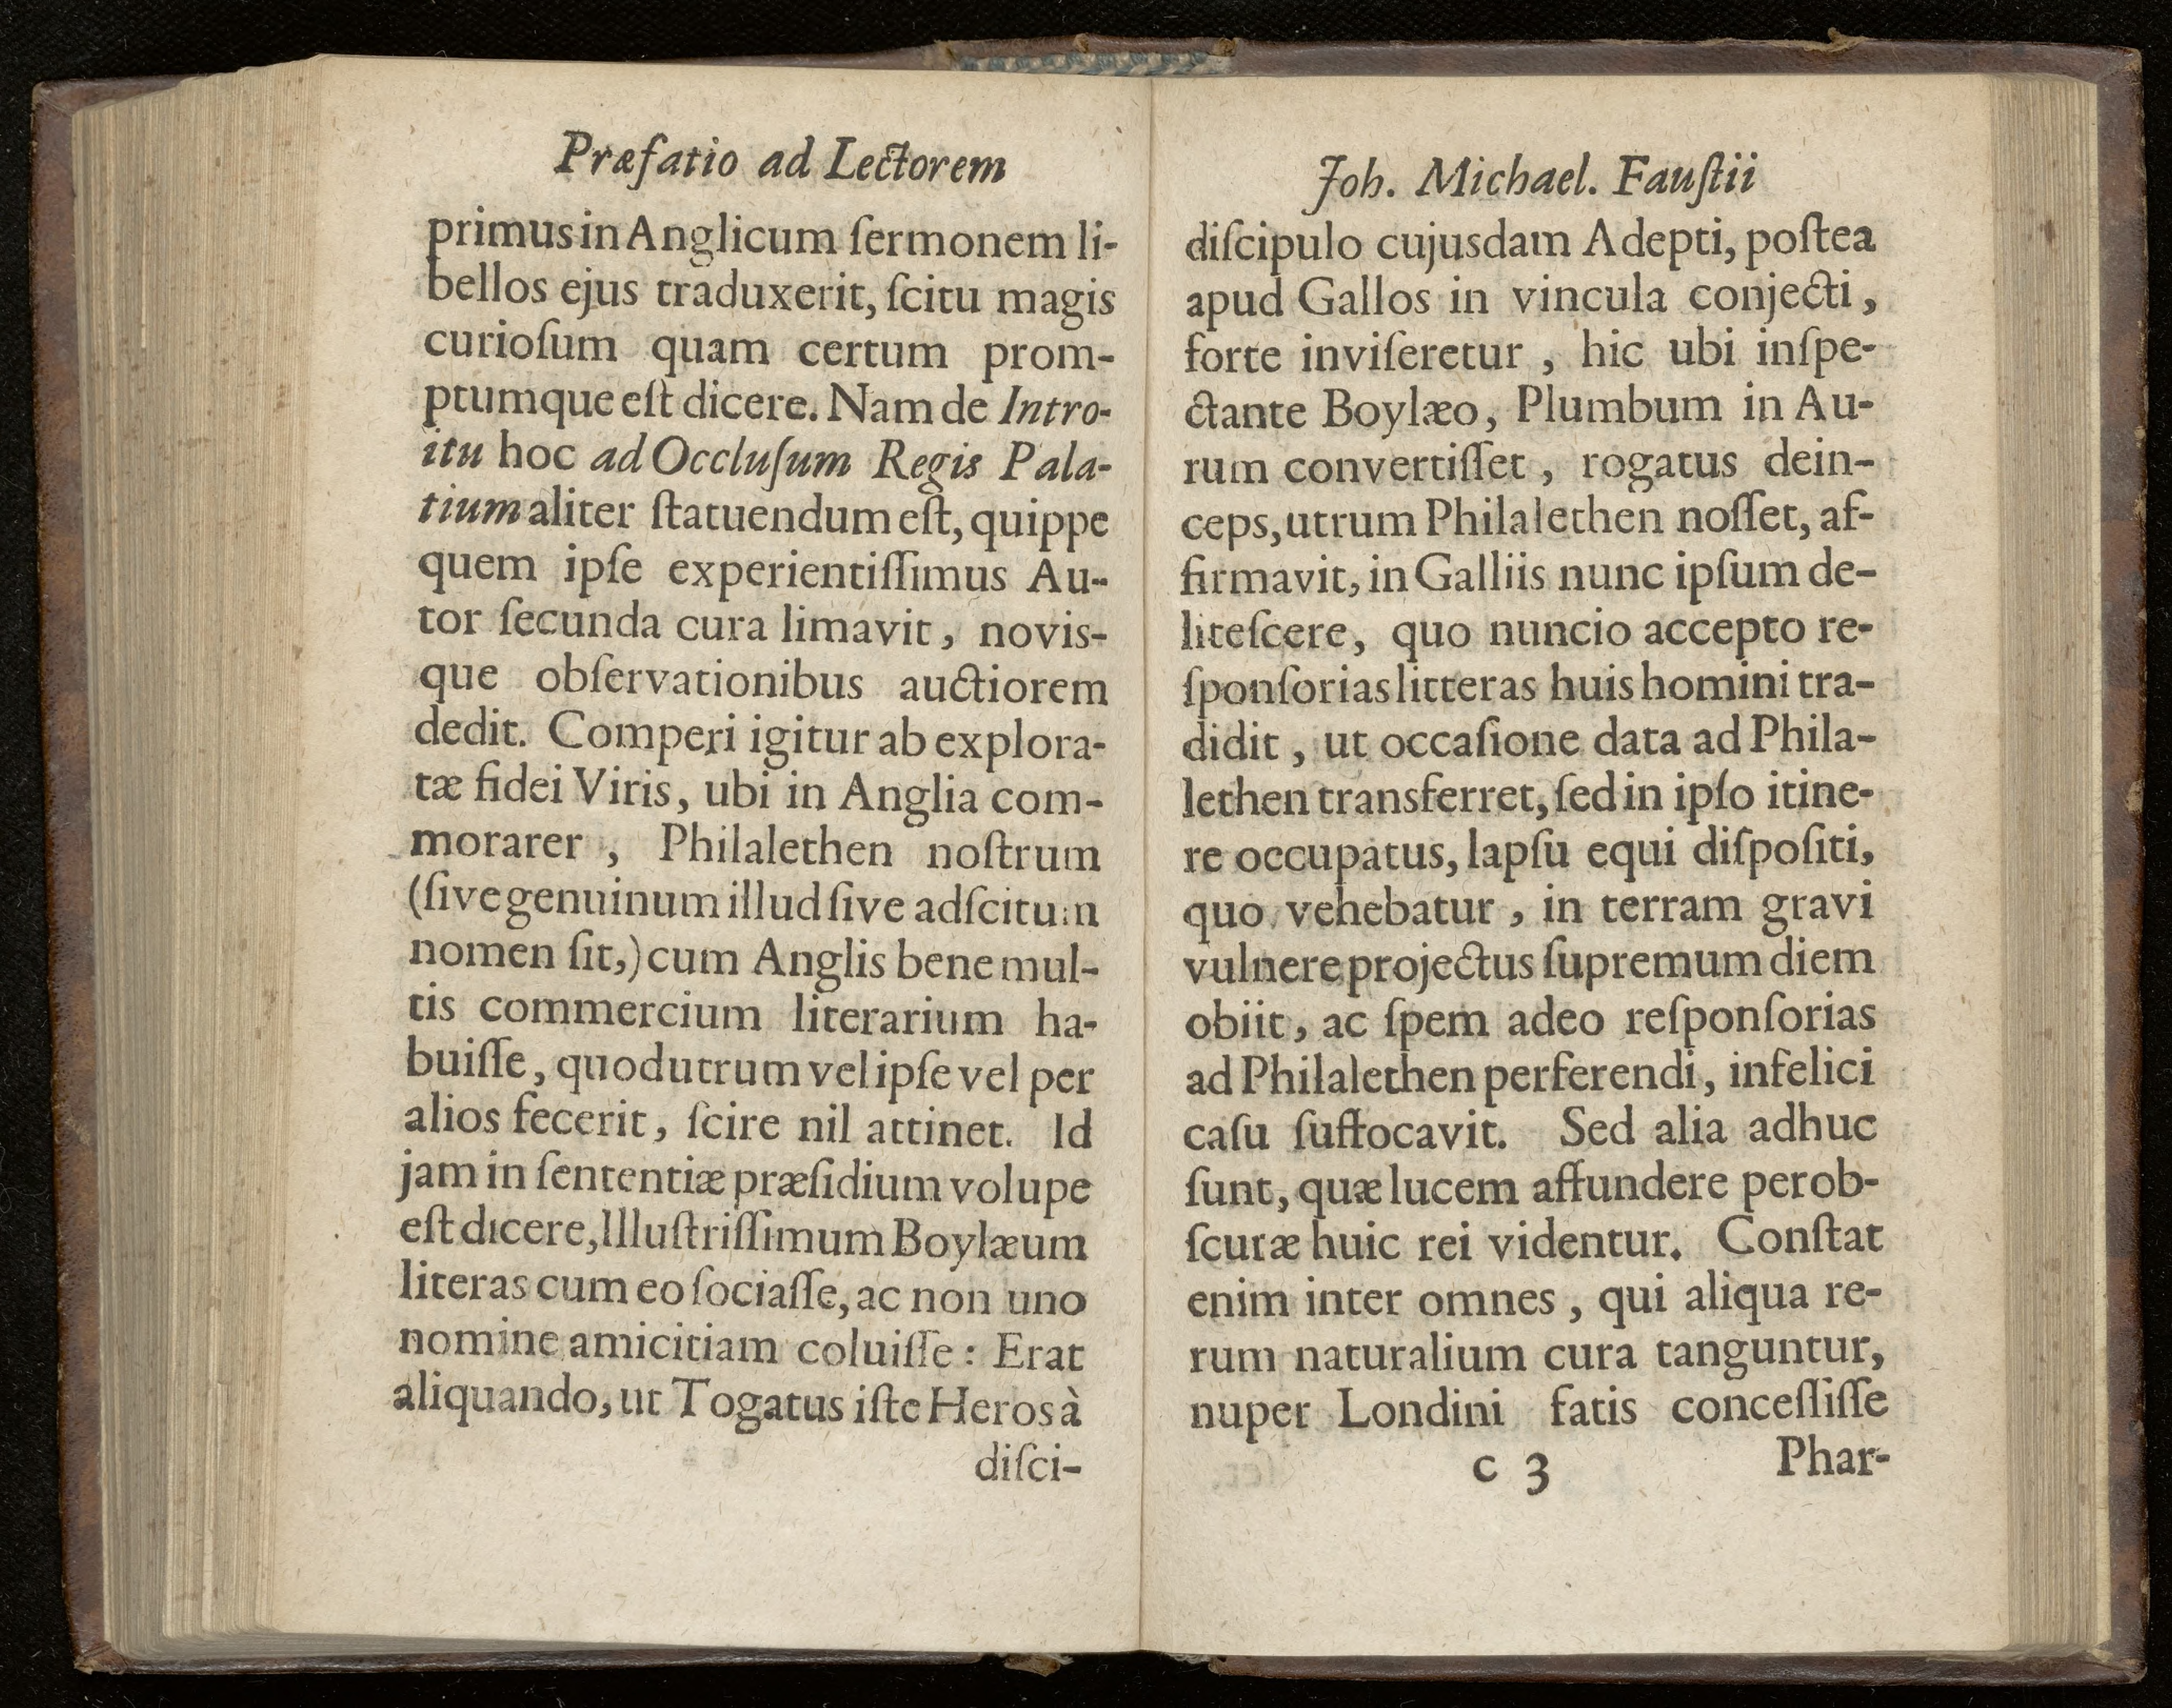 Præfatio ad Lectorem
primus in Anglicum ſermonem li-
bellos ejus traduxerit, ſcitu magis
curioſum quam certum prom-
ptumque eſt dicere. Nam de Intro-
itu hoc ad Occluſum Regis Pala-
tium aliter ſtatuendum eſt, quippe
quem ipſe experientiſſimus Au-
tor ſecunda cura limavit, novis-
que obſervationibus auctiorem
dedit. Comperi igitur ab explora-
tæ fidei Viris, ubi in Anglia com-
morarer, Philalethen noſtrum
(ſive genuinum illud ſive adſcitum
nomen ſit,) cum Anglis bene mul-
tis commercium literarium ha-
buiſſe, quod utrum vel ipſe vel per
alios fecerit, ſcire nil attinet. Id
jam in ſententiæ præſidium volupe
eſt dicere, Illuſtriſſimum Boylæum
literas cum eo ſociaſſe, ac non uno
nomine amicitiam coluiſſe: Erat
aliquando, ut Togatus iſte Heros à
diſci-
Joh. Michael. Fauſtii
diſcipulo cujusdam Adepti, poſtea
apud Gallos in vincula conjecti,
forte inviſeretur, hic ubi inſpe-
ctante Boylæo, Plumbum in Au-
rum convertiſſet, rogatus dein-
ceps, utrum Philalethen noſſet, af-
firmavit, in Galliis nunc ipſum de-
liteſcere, quo nuncio accepto re-
ſponſorias litteras huis homini tra-
didit, ut occaſione data ad Phila-
lethen transferret, ſed in ipſo itine-
re occupatus, lapſu equi diſpoſiti,
quo vehebatur, in terram gravi
vulnere projectus ſupremum diem
obiit, ac ſpem adeo reſponſorias
ad Philalethen perferendi, infelici
caſu ſuffocavit. Sed alia adhuc
ſunt, quæ lucem affundere perob-
ſcuræ huic rei videntur. Conſtat
enim inter omnes, qui aliqua re-
rum naturalium cura tanguntur,
nuper Londini fatis conceſſiſſe
c 3 Phar-